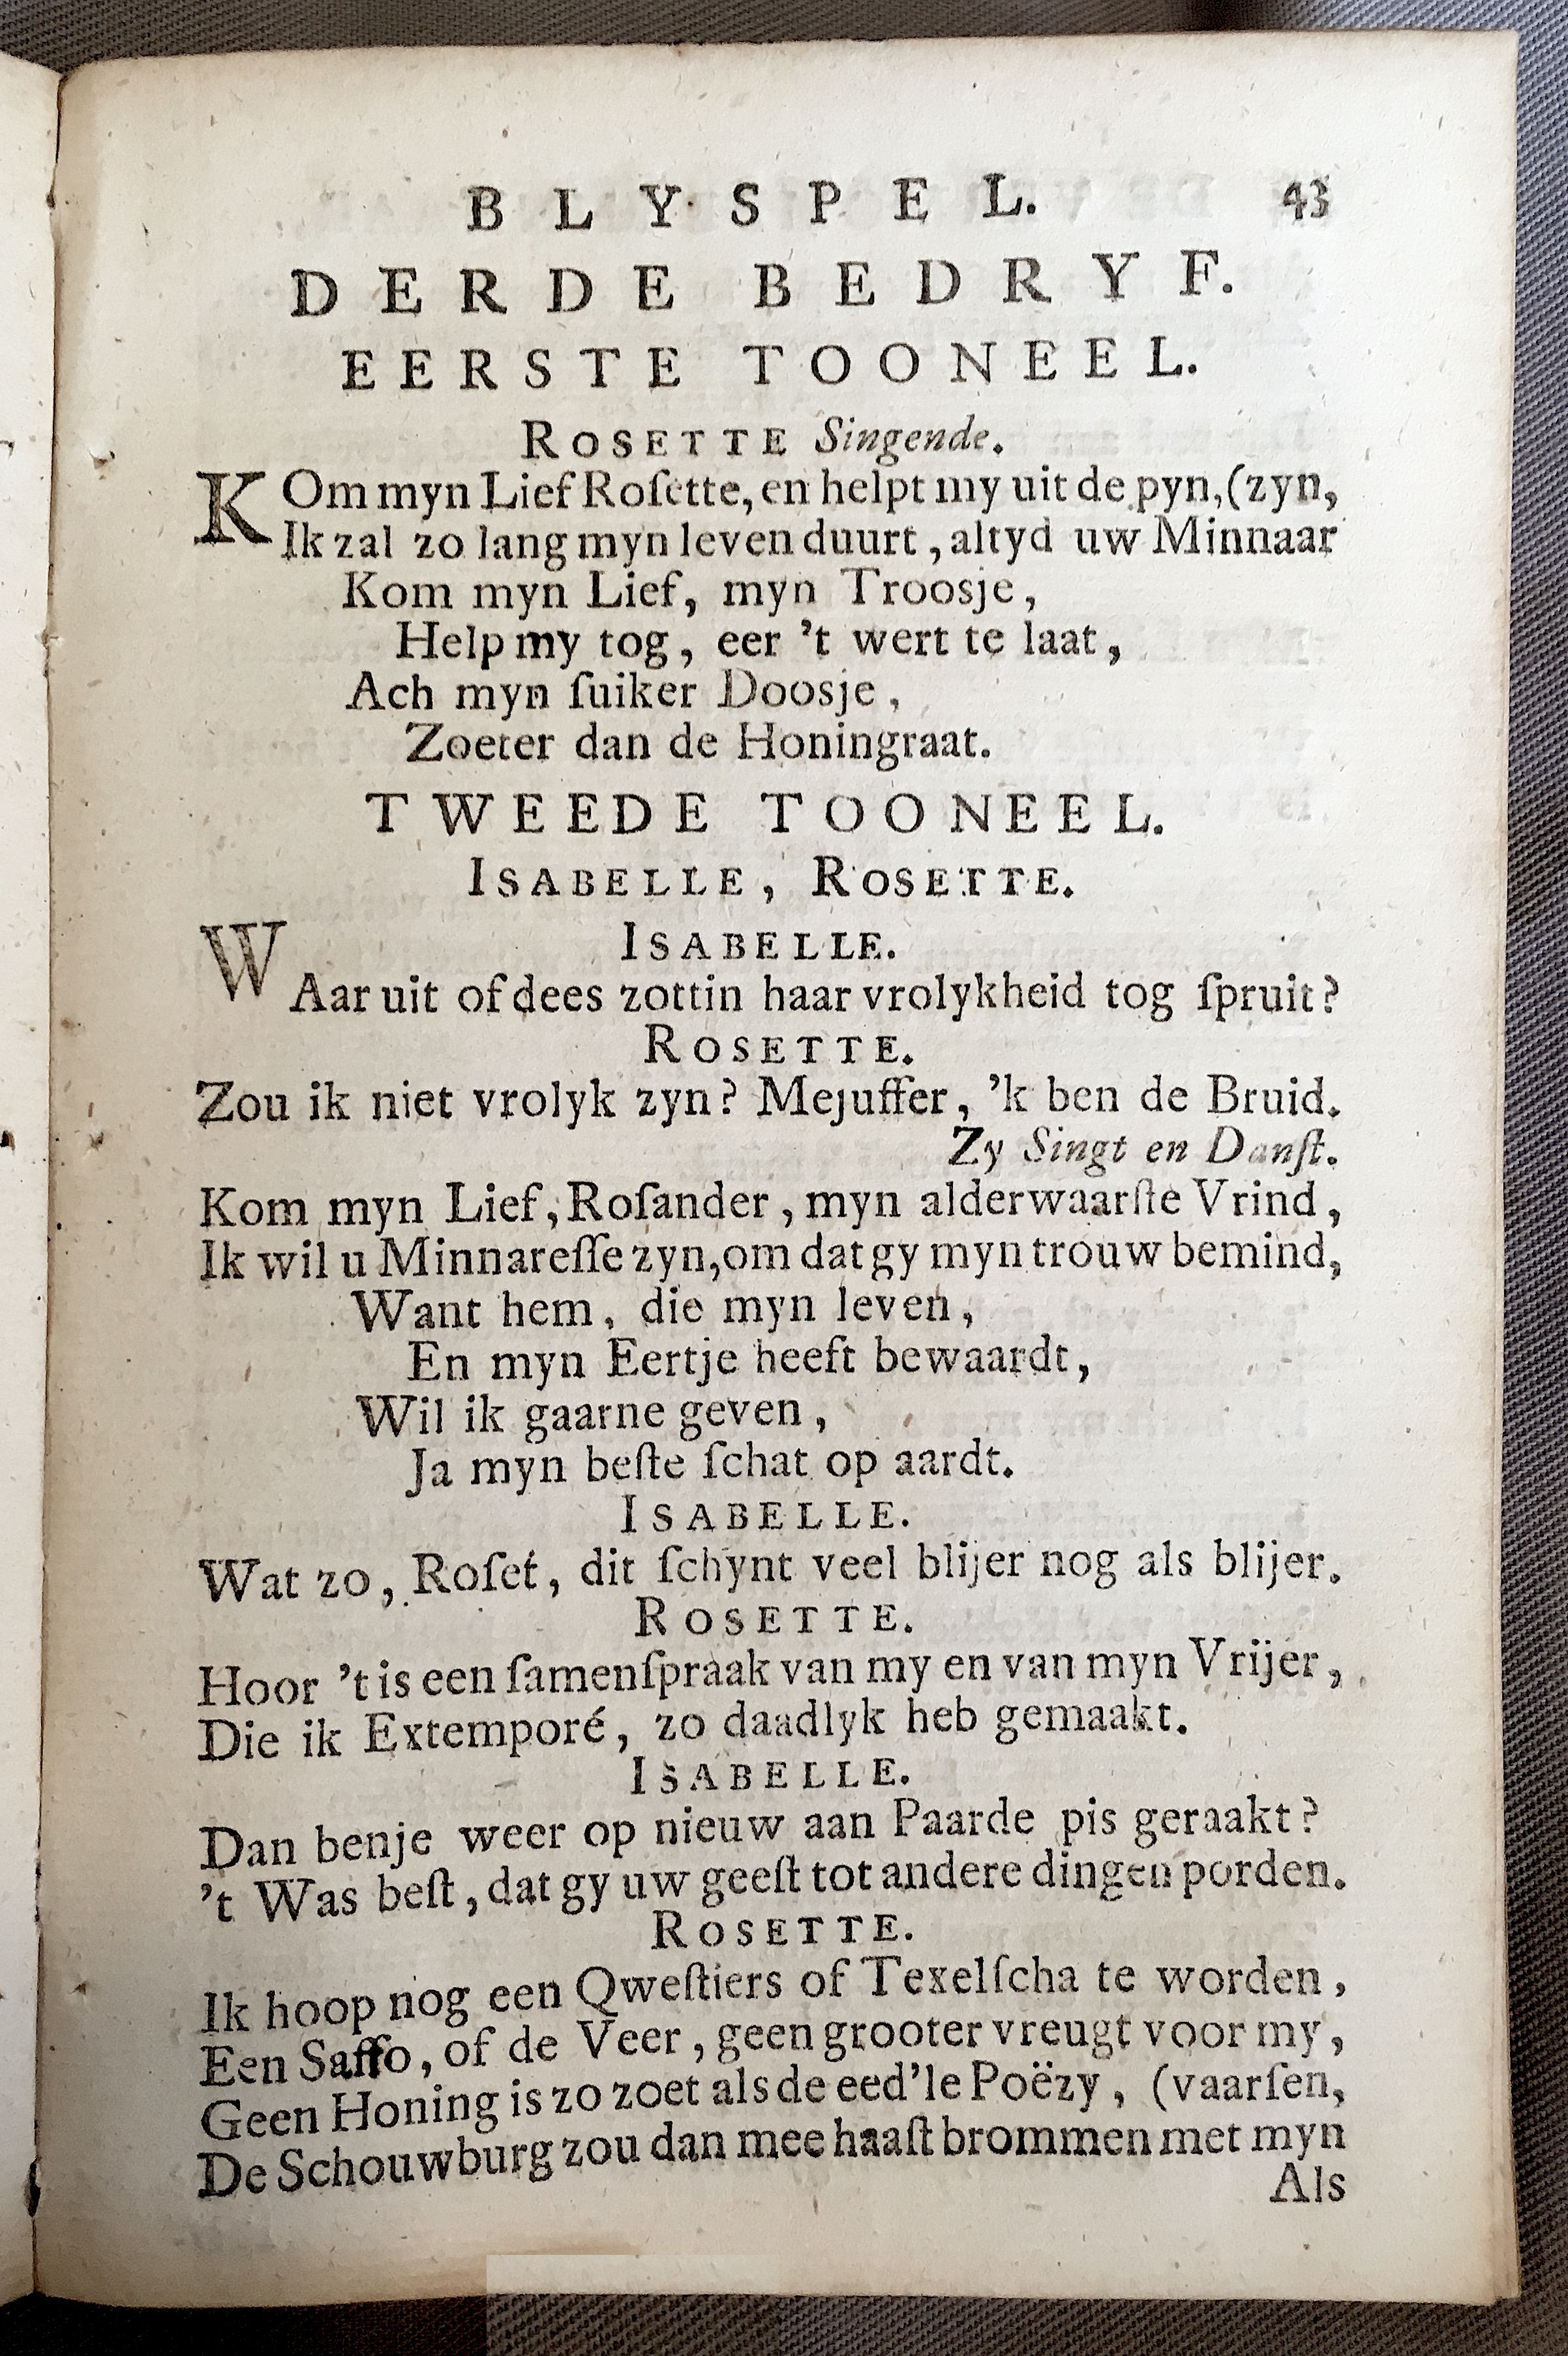 BLYSPEL. 43
DERDE BEDRYF.
EERSTE TOONEEL.
ROSETTE Singende.
KOm myn Lief Roſette, en helpt my uit de pyn, (zyn,
Ik zal zo lang myn leven duurt, altyd uw Minnaar
Kom myn Lief, myn Troosje,
Help my tog, eer 't wert te laat,
Ach myn ſuiker Doosje,
Zoeter dan de Honingraat.
TWEEDE TOONEEL.
ISABELLE, ROSETTE.
ISABELLE.
WAar uit of dees zottin haar vrolykheid tog ſpruit?
ROSETTE.
Zou ik niet vrolyk zyn? Mejuffer, 'k ben de Bruid.
Zy Singt en Danſt.
Kom myn Lief, Roſander, myn alderwaarſte Vrind,
Ik wil u Minnareſſe zyn, om dat gy myn trouw bemind,
Want hem, die myn leven,
En myn Eertje heeft bewaardt,
Wil ik gaarne geven,
Ja myn beſte ſchat op aardt.
ISABELLE.
Wat zo, Roſet, dit ſchynt veel blijer nog als blijer.
ROSETTE.
Hoor 't is een ſamenſpraak van my en van myn Vrijer,
Die ik Extemporé, zo daadlyk heb gemaakt.
ISABELLE.
Dan benje weer op nieuw aan Paarde pis geraakt?
't Was beſt, dat gy uw geeſt tot andere dingen porden.
ROSETTE.
Ik hoop nog een Qweſtiers of Texelſcha te worden,
Een Saffo, of de Veer, geen grooter vreugt voor my,
Geen Honing is zo zoet als de eed'le Poëzy, (vaarſen,
De Schouwburg zou dan mee haaſt brommen met myn
Als